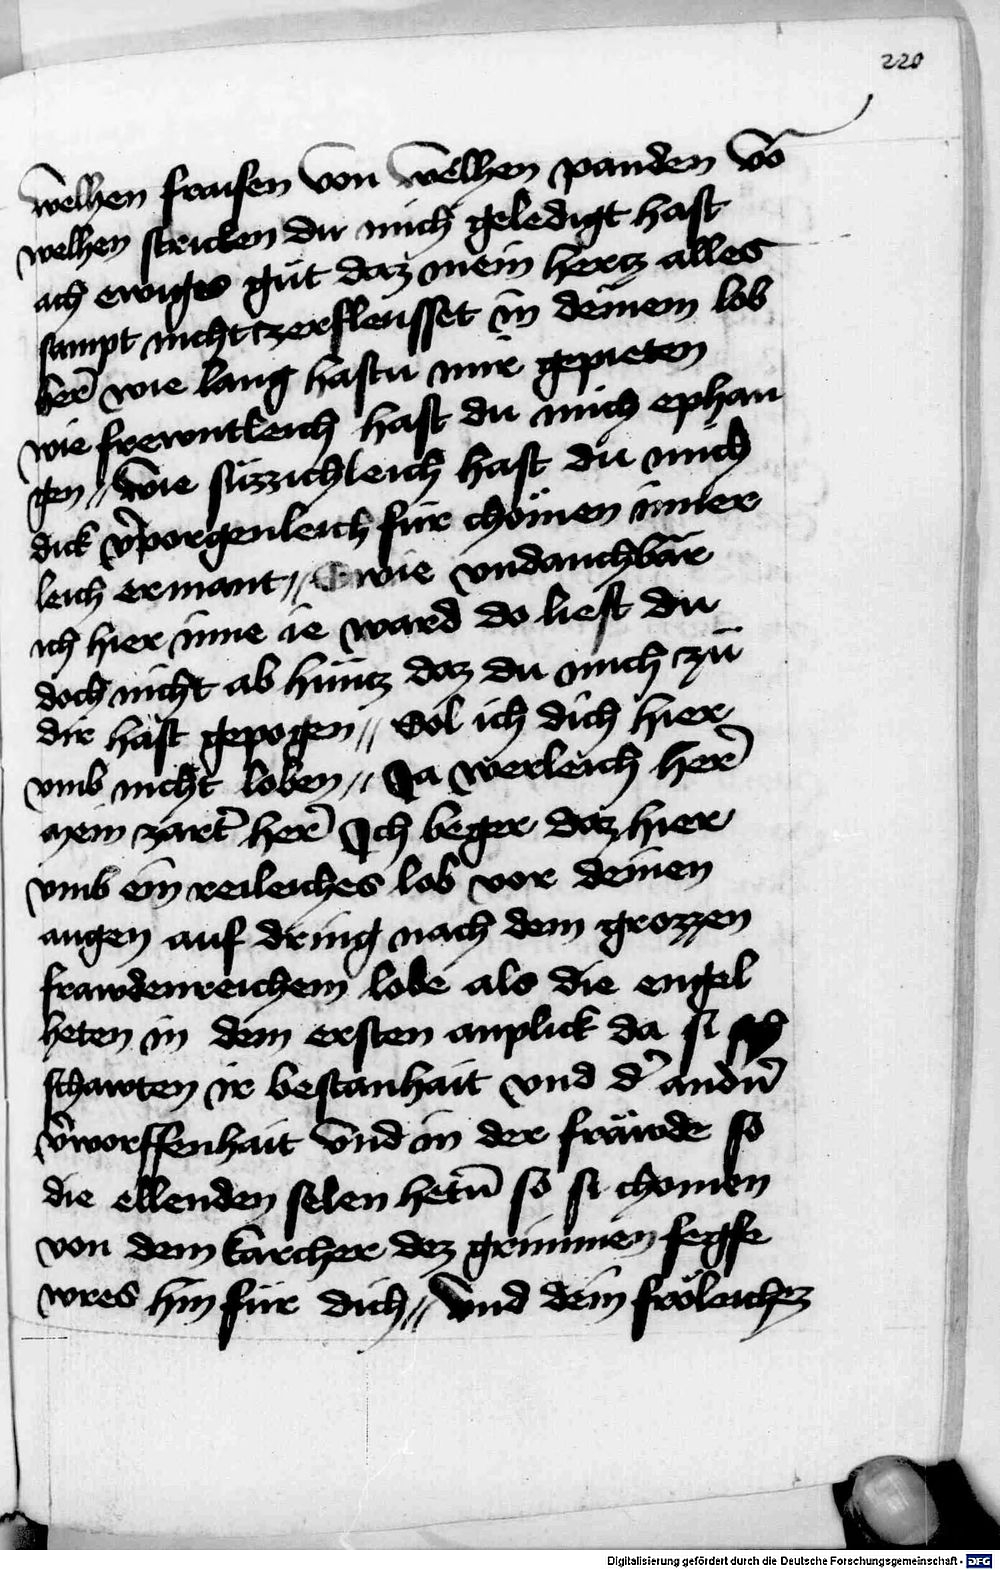 220
welhen fraisen von welhen panden vō
welhen stricken du mich geledigt hast
ach ewiges gůt daz mein hertz alles
sampt nicht zerfleusset in deinem lob
her̄ wie lang hastu mir gepieten
wie frewntleich hast du mich ephan
gen // wie süzzichleich hast du mich
dick v̄porgenleich für chömen inner
leich ermant // wie vndanchbär
ich hier inne ie ward do liest du
doch nicht ab hüntz daz du mich zů
dir hast gepogen // Sol ich dich hier
vmb nicht loben // Ja werleich her̄
mein zart̄ her̄ Ich beger daz hier
vmb ein reileiches lob vor deinen
augen auf dring nach dem grozzen
frawdenreichem lobe als die engel
heten in dem ersten anplick da si
schawten ir bestanhait vnd d̄ andn̄
v̄worffenhait vnd in der fräwde so
die ellenden selen hetn̄ so si chomen
von dem karcher dez grimmen fegfe
wres hin für dich // vnd dein fröleichez
Digitalisierung gefördert durch die Deutsche Forschungsgemeinschaft - DFG